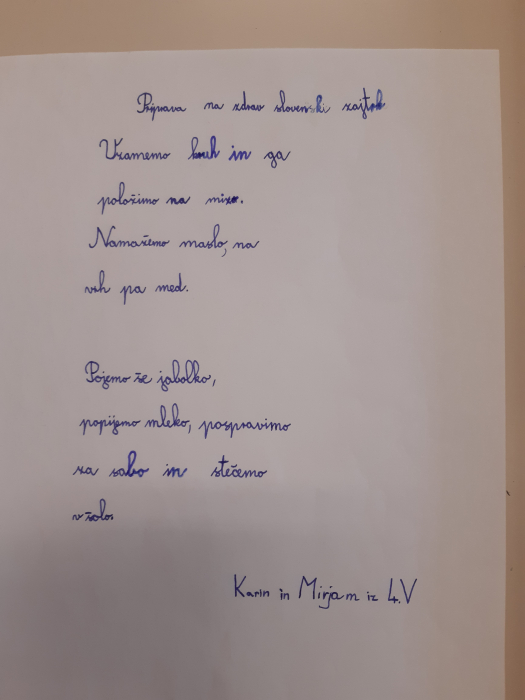 Priprava na zdrav slovenski zajtrk
Vzamemo kruh in ga
položimo na mizo.
Namažemo maslo, na
vrh pa med.
Pojemo še jabolko,
popijemo mleko, pospravimo
za sabo in stečemo
v šolo.
Karin in Mirjam iz 4.V